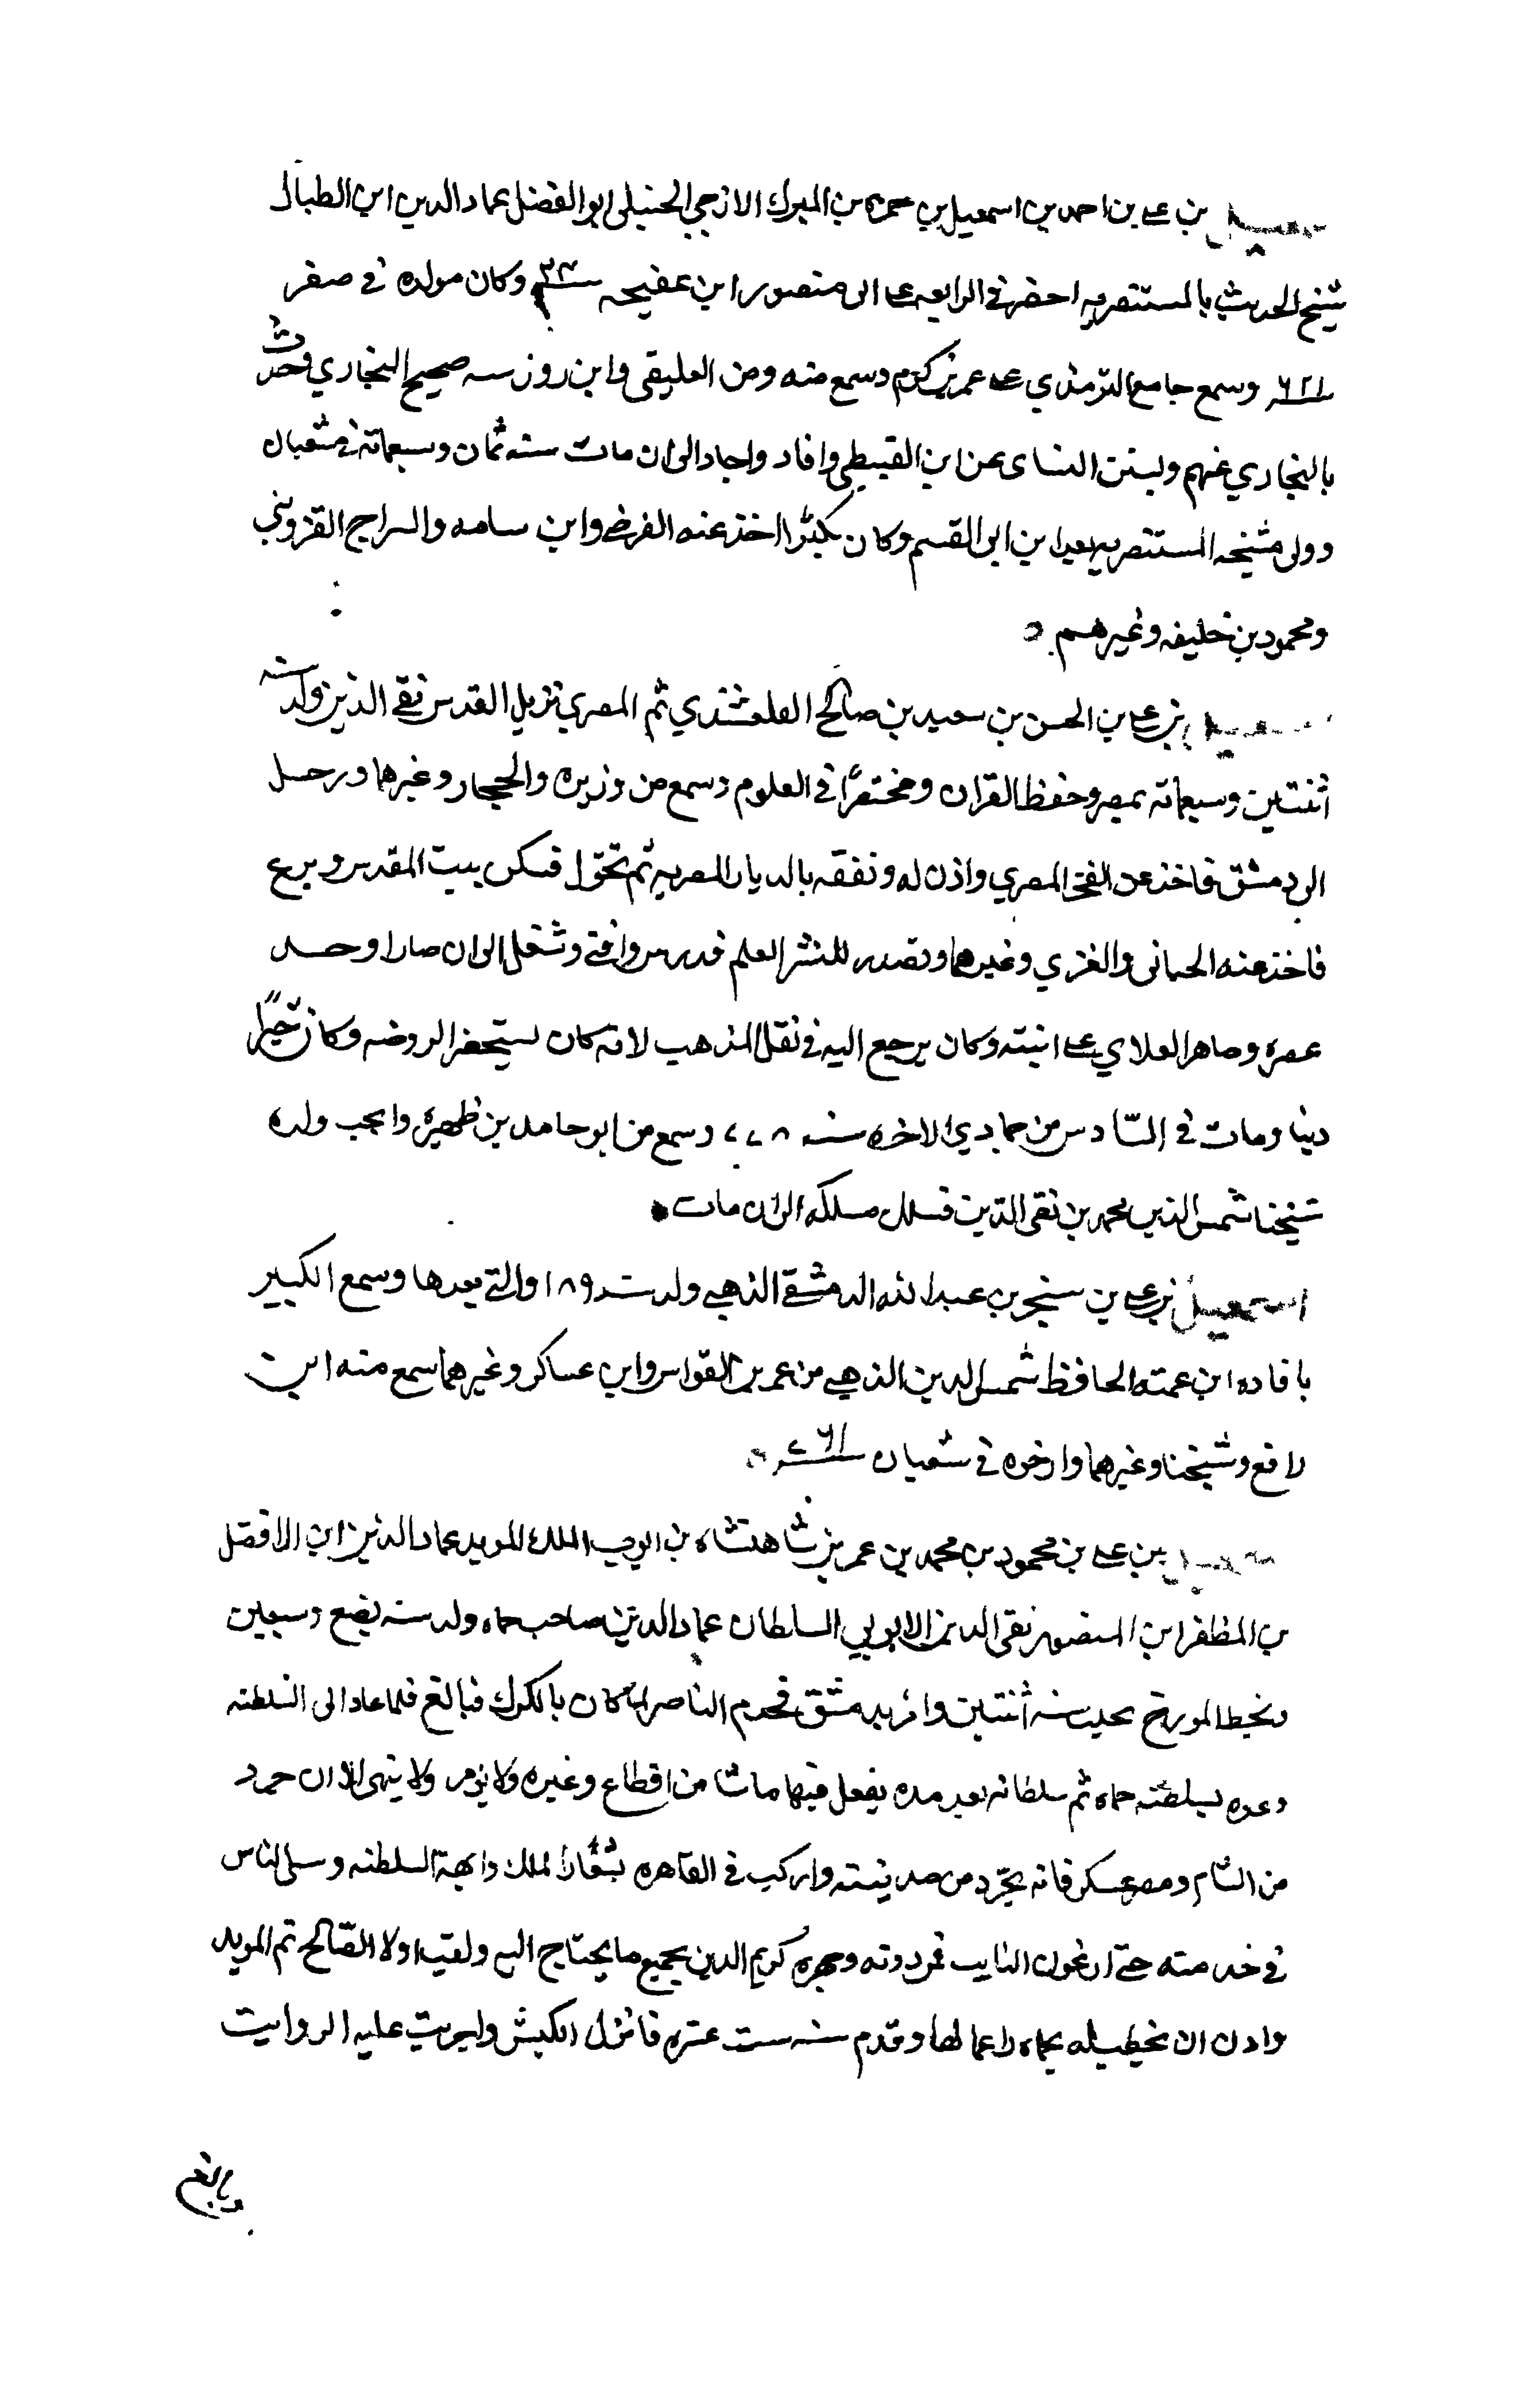 اسمعيل بن علي بن احمد بن اسمعيل بن حمزه بن المبرك الازجي الحنبلي ابو الفضل عماد الدين ابن الطبال
شيخ الحديث بالمستنصريه احضر في الرابعه على ابى منصور ابن عفيجه سنه وكان مولده في صفر
سنه ٦٢١ وسمع جامع الترمذي على عمر بن كرم وسمع منه ومن القطيعى وابن روزبه صحيح البخاري وحدث
بالبخاري عنهم وبسنن النساى عن ابن القبيطي وافاد واجاد الى ان مات سنه ثمان وسبعمائة في شعبان
وولى مشيخه المستنصريه بعد ابن ابى القسم وكان مكثرا اخذ عنه الفرضي وابن سامه والسراج القزويني
ومحمود بن خليفه وغيرهم
اسمعيل بن علي بن الحسن بن سعيد بن صالح القلقشندي ثم المصري نزيل القدس تقي الدين ولد سنه
اثنتين وسبعمائه بمصر وحفظ القران ومختصرًا في العلوم وسمع من وزيره والحجار وغيرهما ورحل
الى دمشق فاخذ عن الفخر المصري واذن له وتفقه بالديار المصريه ثم تحوّل فسكن بيت المقدس وبرع
فاخذ عنه الحسانى والغزي وغيرهما وتصدر للنشر العلم فدرس وافتى وشغل الى ان صار اوحد
عصره وصاهر العلاي على ابنته وكان يرجع اليه في نقل المذهب لانه كان يستحضر الروضه وكان خيّرًا
دينا ومات في السّادس من جمادي الاخره سنه ٧٧٨ وسمع من ابو حامد بن ظهيرة وانجب ولده
شيخنا شمس الدين محمد بن تقى الدّين فسلك مسلكه الى ان مات
اسمعيل بن علي بن سنجر بن عبد الله الدمشقي الذهبي ولد سنه ٨٩ او التي بعدها وسمع الكبير
بافاده ابن عمته الحافظ شمس الدين الذهبي من عمر بن القواس وابن عساكر وغيرهما سمع منه ابن
رافع وشيخنا وغيرهما وارخوه في شعبان سنه ٧٦١
اسمعيل بن علي بن محمود بن محمد بن عمر بن شاهنشاه بن ايوب الملك المويد عماد الدين ابن الافضل
بن المظفر ابن المنصور تقى الدين الايوبي السلطان عماد الدين صاحب حماه ولد سنه بضع وسبعين
وبخط المورخ سنه اثنتين وامّر بدمشق فخدم الناصر لمّا كان بالكرك فبالغ فلما عاد الى السلطنه
وعده بسلطنه حماه ثم سلطانه بعد مده يفعل فيها ما شا من اقطاع وغيره ولا يؤمر ولا ينهى الا ان جرد
من الشام ومصر عسكر فانه يجّرد من مدينته واركب في القاهره بشعار الملك وابهة السلطنه ومشى الناس
في خدمته حتى ارغون النايب فمن دونه وجهزه كريم الدين بجميع ما يحتاج اليه ولقبه اولا الصّالح ثم المويد
واذن ان يخطب له بحماه واعمالها وقدم سنه ست عشره فانزل الكبش واجريت عليه الرواتب